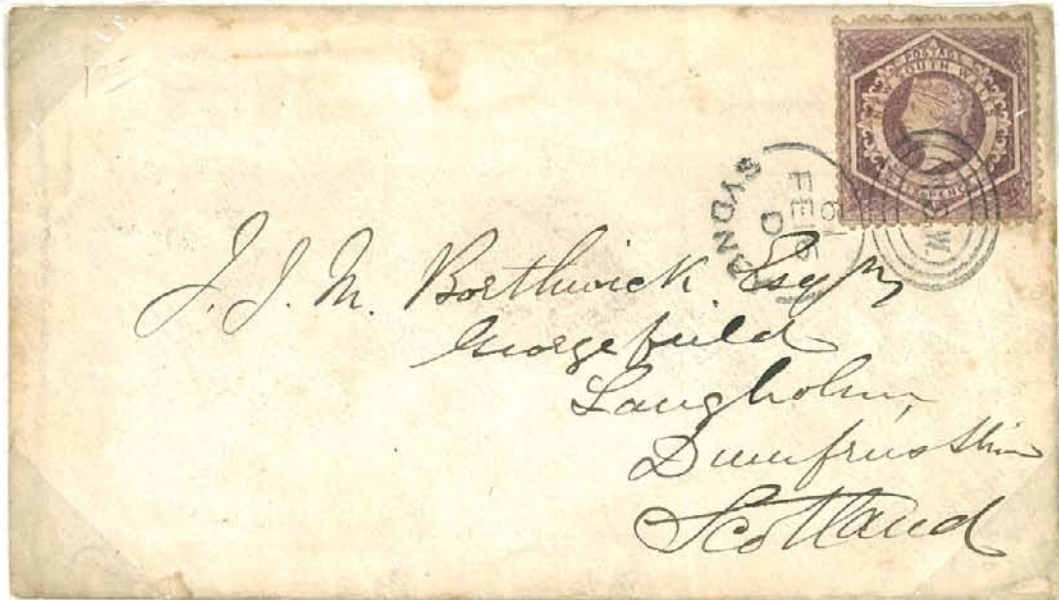 POSTAGE
NEW SOUTH WALES
SIXPENCE
SYDNEY
D
FE 15
61
N.S.W.
J. J. M. Borthwick Esqr
Georgefield
Langholm,
Dumfriesshire
Scotland